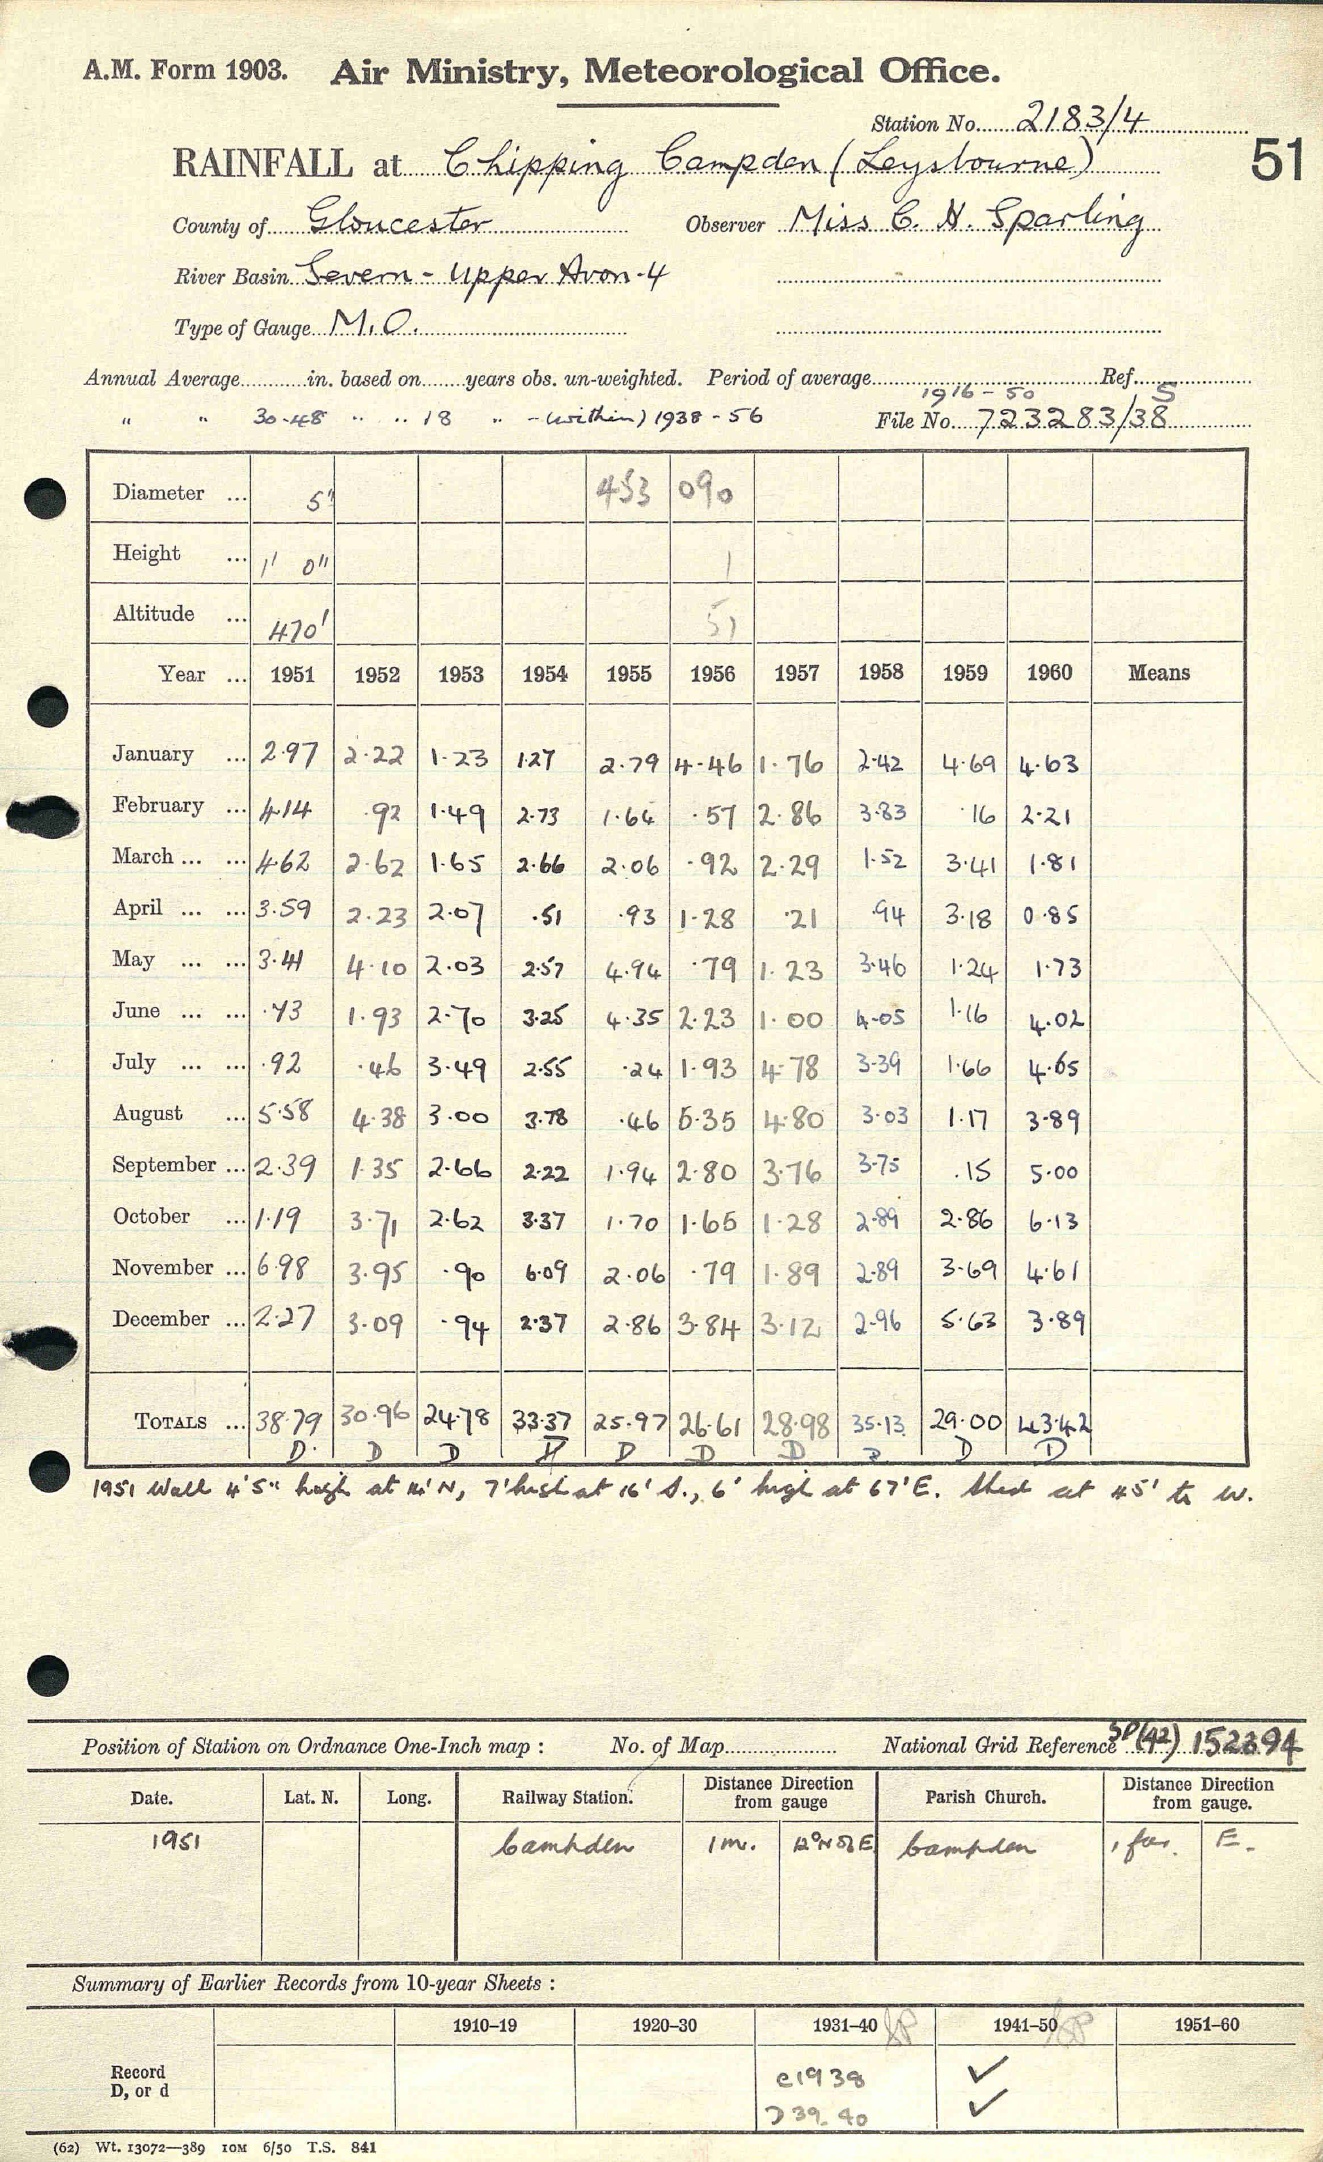 A.M. Form 1903. Air Ministry, Meteorological Office.
Station No. 2183/4
51
RAINFALL at Chipping Campden (Leysbourne)
County of Gloucester Observer Miss C. H. Sparling
River Basin Severn - Upper Avon - 4
Type of Gauge M.O.
Annual Average in. based on years obs. un-weighted. Period of average 1916-50 Ref. S
" " 30.48 " " 18 " - (within) 1938-56 File No. 723283/38
Diameter ... 5" 453 090
Height ... 1' 0" 1
Altitude ... 470' 51
Year ... 1951 1952 1953 1954 1955 1956 1957 1958 1959 1960 Means
January ... 2.97 2.22 1.23 1.27 2.79 4.46 1.76 2.42 4.69 4.63
February ... 4.14 .92 1.49 2.73 1.64 .57 2.86 3.83 .16 2.21
March ... ... 4.62 2.62 1.65 2.66 2.06 .92 2.29 1.52 3.41 1.81
April ... ... 3.59 2.23 2.07 .51 .93 1.28 .21 .94 3.18 0.85
May ... ... 3.41 4.10 2.03 2.57 4.94 .79 1.23 3.46 1.24 1.73
June ... ... .73 1.93 2.70 3.25 4.35 2.23 1.00 4.05 1.16 4.02
July ... ... .92 .46 3.49 2.55 .24 1.93 4.78 3.39 1.66 4.65
August ... 5.58 4.38 3.00 3.78 .46 5.35 4.80 3.03 1.17 3.89
September ... 2.39 1.35 2.66 2.22 1.94 2.80 3.76 3.75 .15 5.00
October ... 1.19 3.71 2.62 3.37 1.70 1.65 1.28 2.89 2.86 6.13
November ... 6.98 3.95 .90 6.09 2.06 .79 1.89 2.89 3.69 4.61
December ... 2.27 3.09 .94 2.37 2.86 3.84 3.12 2.96 5.63 3.89
TOTALS ... 38.79 30.96 24.78 33.37 25.97 26.61 28.98 35.13 29.00 43.42
D. D D D D D D D D D
1951 Wall 4'5" high at 14' N, 7' high at 16' S., 6' high at 67' E. Shed at 45' to W.
Position of Station on Ordnance One-Inch map : No. of Map National Grid Reference SP(42) 152394
Date. Lat. N. Long. Railway Station. Distance Direction from gauge Parish Church. Distance Direction from gauge.
1951 Campden 1 m. Campden 1 fur. E.
Summary of Earlier Records from 10-year Sheets :
1910–19 1920–30 1931–40 SP 1941–50 SP 1951–60
Record c1938 ✓
D, or d D 39-40 ✓
(62) Wt. 13072—389 10M 6/50 T.S. 841